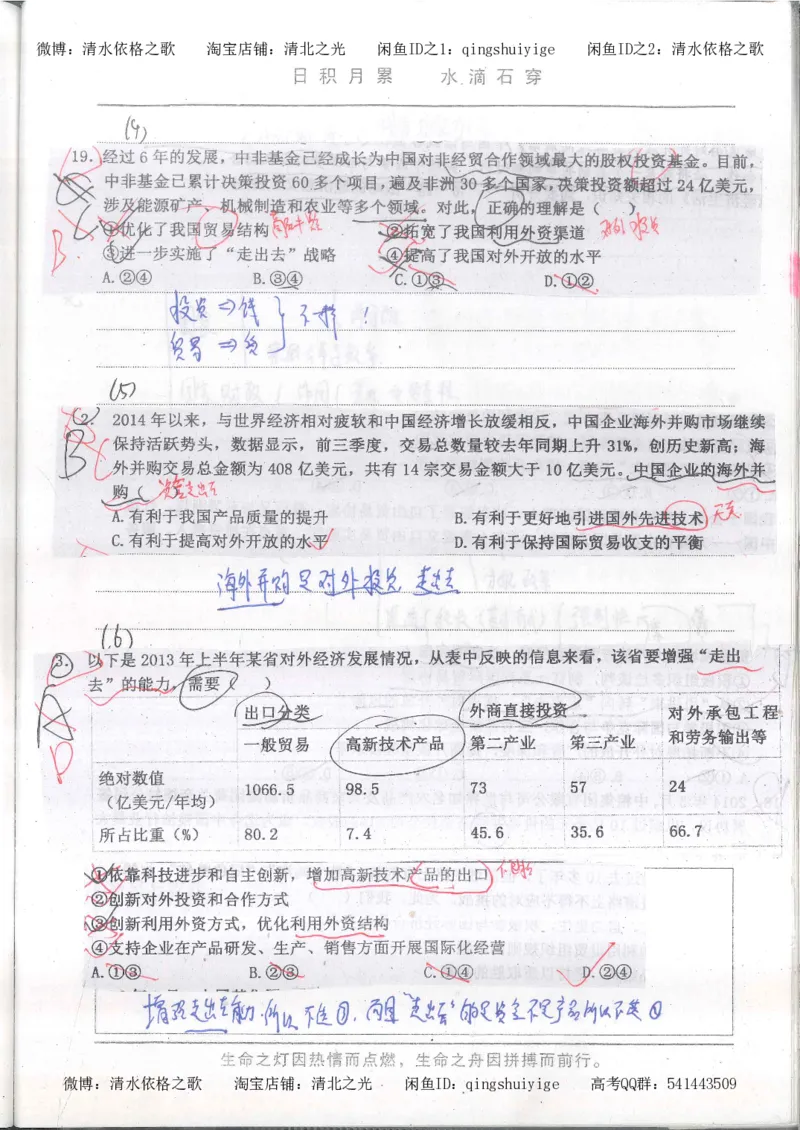 微博：清水依格之歌 淘宝店铺：清北之光 闲鱼ID之1：qingshuiyige 闲鱼ID之2：清水依格之歌
日积月累 水滴石穿
(4)
19. 经过6年的发展，中非基金已经成长为中国对非经贸合作领域最大的股权投资基金。目前，
中非基金已累计决策投资60多个项目，遍及非洲30多个国家，决策投资额超过24亿美元，
涉及能源矿产、机械制造和农业等多个领域。对此，正确的理解是（ ）
①优化了我国贸易结构 ②拓宽了我国利用外资渠道
③进一步实施了“走出去”战略 ④提高了我国对外开放的水平
A.②④ B.③④ C.①③ D.①②
B
投资⇒钱
贸易⇒货
不一样！
(5)
2 2014年以来，与世界经济相对疲软和中国经济增长放缓相反，中国企业海外并购市场继续
B
保持活跃势头，数据显示，前三季度，交易总数量较去年同期上升31%，创历史新高；海
外并购交易总金额为408亿美元，共有14宗交易金额大于10亿美元。中国企业的海外并
购（
A.有利于我国产品质量的提升 B.有利于更好地引进国外先进技术 无关
C.有利于提高对外开放的水平 D.有利于保持国际贸易收支的平衡
海外并购是对外投资 走出去
(6)
3. 以下是2013年上半年某省对外经济发展情况，从表中反映的信息来看，该省要增强“走出
去”的能力，需要（ ）
A
D
出口分类 外商直接投资 对外承包工程
和劳务输出等
一般贸易 高新技术产品 第二产业 第三产业
绝对数值
（亿美元/年均） 1066.5 98.5 73 57 24
所占比重（%） 80.2 7.4 45.6 35.6 66.7
①依靠科技进步和自主创新，增加高新技术产品的出口
②创新对外投资和合作方式
③创新利用外资方式，优化利用外资结构
④支持企业在产品研发、生产、销售方面开展国际化经营
A.①③ B.②③ C.①④ D.②④
增强走出去能力，所以不选③，而且“走出去”的是资金不是产品所以不选①
生命之灯因热情而点燃，生命之舟因拼搏而前行。
微博：清水依格之歌 淘宝店铺：清北之光 闲鱼ID：qingshuiyige 高考QQ群：541443509